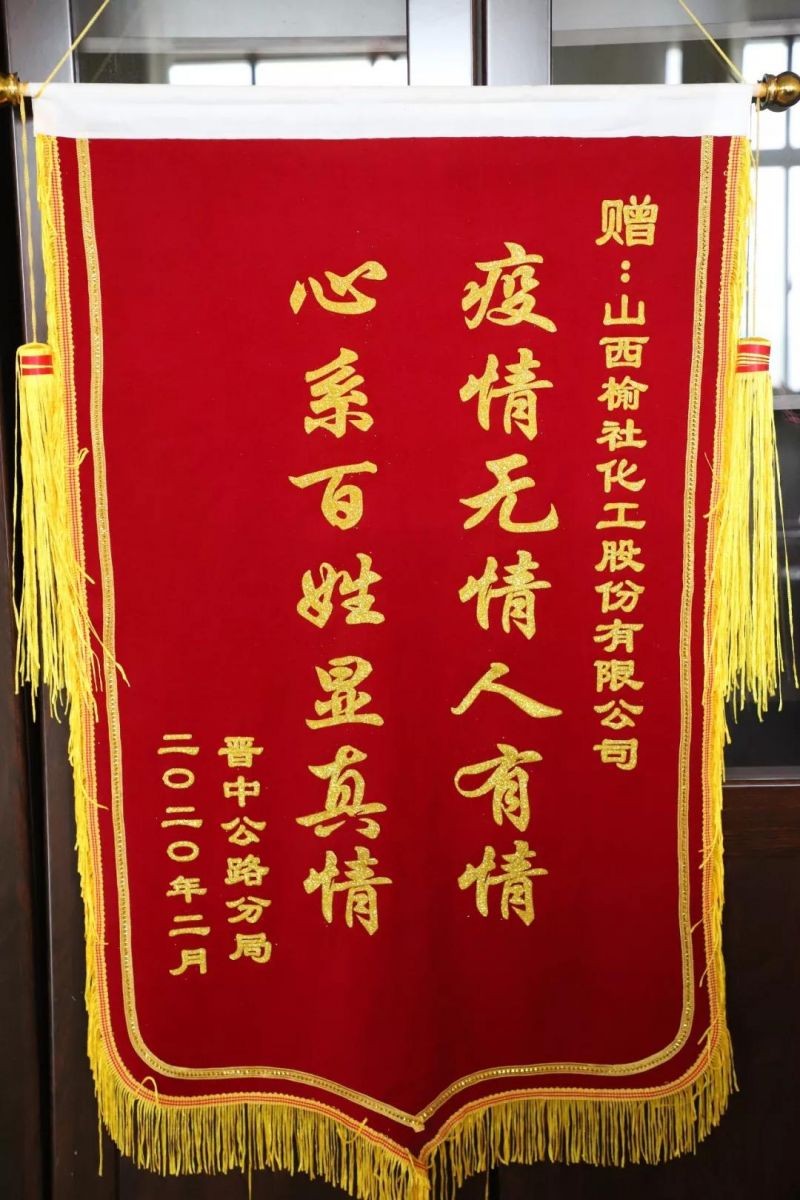 赠：山西榆社化工股份有限公司
疫情无情人有情
心系百姓显真情
晋中公路分局
二〇二〇年二月